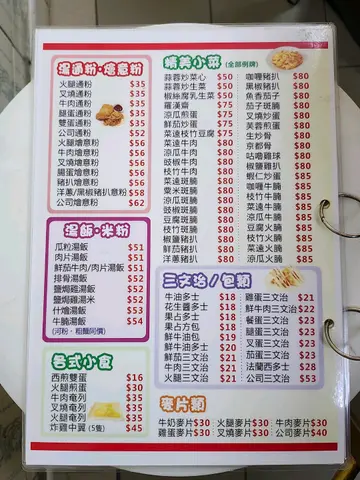 湯通粉·燴意粉
火腿通粉 $35
叉燒通粉 $35
牛肉通粉 $35
腿蛋通粉 $35
雙蛋通粉 $35
公司通粉 $52
火腿燴意粉 $56
牛肉燴意粉 $56
叉燒燴意粉 $56
腸蛋燴意粉 $56
豬扒燴意粉 $56
洋蔥/黑椒豬扒意粉 $58
公司燴意粉 $62
湯飯·米粉
瓜粒湯飯 $51
肉片湯飯 $51
鮮茄牛肉/肉片湯飯 $51
排骨湯飯 $52
鹽焗雞湯飯 $52
鹽焗雞湯米 $52
什燴湯飯 $53
牛腩湯飯 $54
(河粉、粗麵同價)
各式小食
西煎雙蛋 $16
火腿煎蛋 $30
牛肉奄列 $35
叉燒奄列 $35
火腿奄列 $35
炸雞中翼(5隻) $45
精美小菜 (全部例牌)
蒜蓉炒菜心 $50
蒜蓉炒生菜 $50
椒絲腐乳生菜 $50
羅漢齋 $75
涼瓜煎蛋 $75
鮮茄炒蛋 $75
菜遠枝竹豆腐 $75
菜遠牛肉 $80
涼瓜牛肉 $80
豉椒牛肉 $80
枝竹牛肉 $80
菜遠斑腩 $80
粟米斑腩 $80
涼瓜斑腩 $80
豉椒斑腩 $80
豆腐斑腩 $80
枝竹斑腩 $80
椒鹽豬扒 $80
茄汁豬扒 $80
洋蔥豬扒 $80
咖喱豬扒 $80
黑椒豬扒 $80
魚香茄子 $80
茄子斑腩 $80
叉燒炒蛋 $80
芙蓉煎蛋 $80
生炒骨 $80
京都骨 $80
咕嚕雞球 $80
椒鹽雞球 $80
蝦仁炒蛋 $80
咖喱牛腩 $85
枝竹牛腩 $85
涼瓜牛腩 $85
豆腐火腩 $85
枝竹火腩 $85
菜遠火腩 $85
涼瓜火腩 $85
三文治/包類
牛油多士 $18
花生醬多士 $18
果占多士 $18
果占方包 $18
鮮牛油包 $19
鮮牛油多士 $20
鮮茄三文治 $21
牛肉三文治 $21
火腿三文治 $21
雞蛋三文治 $21
鮮牛肉三文治 $22
餐蛋三文治 $23
腿蛋三文治 $23
叉蛋三文治 $23
茄蛋三文治 $23
法蘭西多士 $28
公司三文治 $53
麥片類
牛奶麥片$30 火腿麥片$30 牛肉麥片$30
雞蛋麥片$30 叉燒麥片$30 公司麥片$40